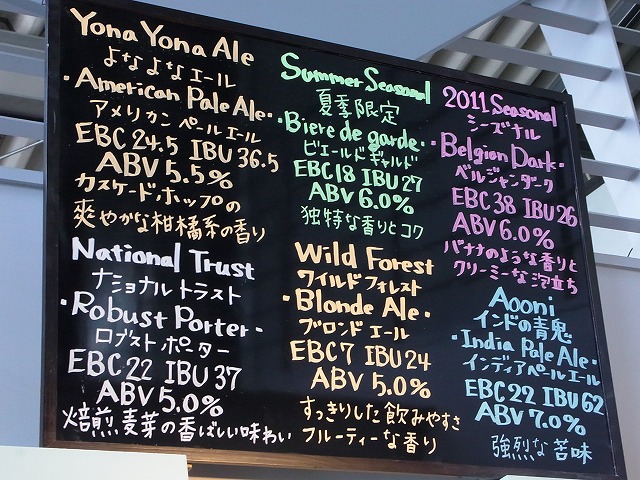 Yona Yona Ale
よなよなエール
・American Pale Ale・
アメリカン ペールエール
EBC 24.5 IBU 36.5
ABV 5.5%
カスケードホップの
爽やかな柑橘系の香り
National Trust
ナショナル トラスト
・Robust Porter・
ロブスト ポーター
EBC 22 IBU 37
ABV 5.0%
焙煎麦芽の香ばしい味わい
Summer Seasonal
夏季限定
・Biere de garde・
ビエールド ギャルド
EBC 18 IBU 27
ABV 6.0%
独特な香りとコク
Wild Forest
ワイルドフォレスト
・Blonde Ale・
ブロンド エール
EBC 7 IBU 24
ABV 5.0%
すっきりした飲みやすさ
フルーティーな香り
2011 Seasonal
シーズナル
・Belgian Dark・
ベルジャンダーク
EBC 38 IBU 26
ABV 6.0%
バナナのような香りと
クリーミーな泡立ち
Aooni
インドの青鬼
・India Pale Ale・
インディアペールエール
EBC 22 IBU 62
ABV 7.0%
強烈な苦味